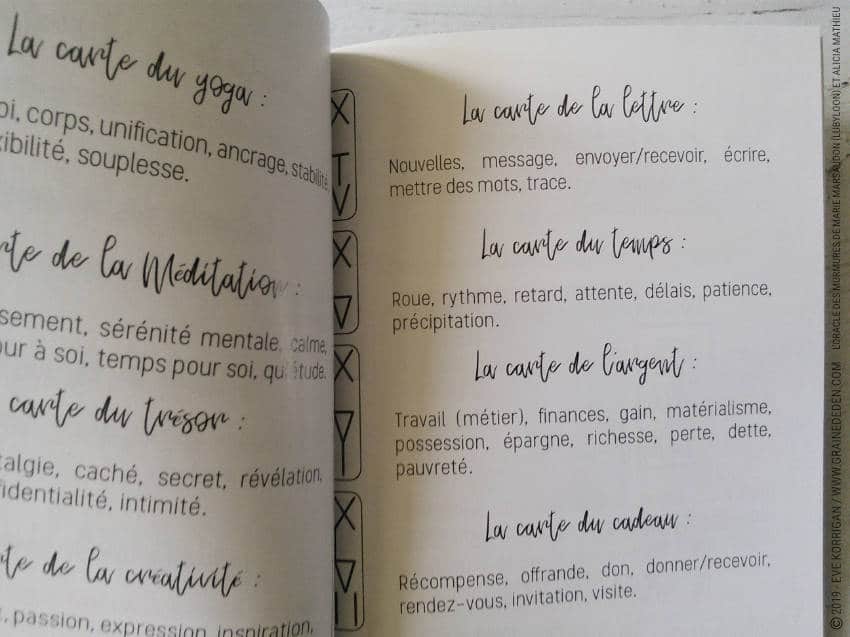 La carte du yoga :
corps, unification, ancrage, stabilité
souplesse.
de la Méditation :
sérénité mentale, calme,
à soi, temps pour soi,
carte du trésor :
caché, secret, révélation,
intimité.
de la créativité :
passion, expression, inspiration,
La carte de la lettre :
Nouvelles, message, envoyer/recevoir, écrire,
mettre des mots, trace.
La carte du temps :
Roue, rythme, retard, attente, délais, patience,
précipitation.
La carte de l'argent :
Travail (métier), finances, gain, matérialisme,
possession, épargne, richesse, perte, dette,
pauvreté.
La carte du cadeau :
Récompense, offrande, don, donner/recevoir,
rendez-vous, invitation, visite.
© 2019 - EVE KORRIGAN / WWW.GRAINEDEDEN.COM L'ORACLE DES MURMURES DE MARIE MARSAUDON (LUBYLOON) ET ALICIA MATHIEU